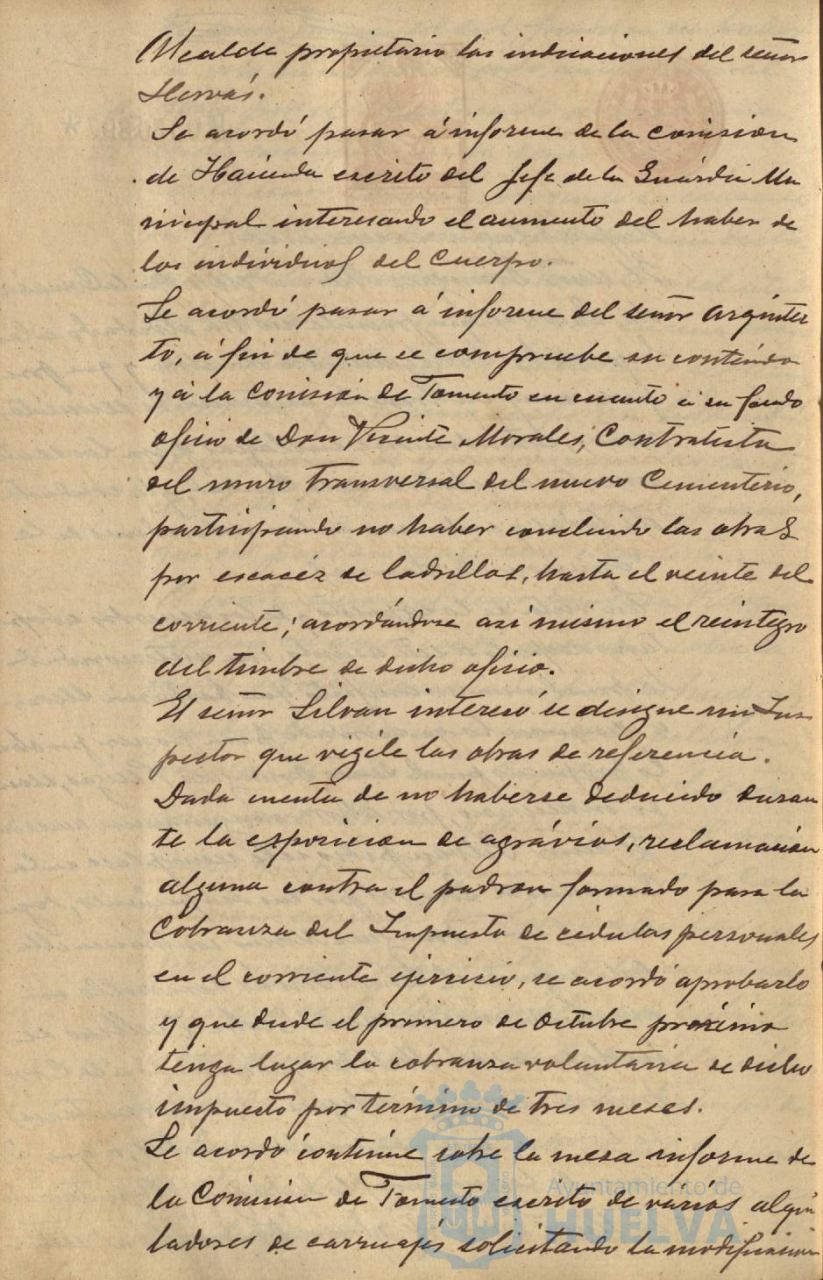 Alcalde propietario las indicaciones del señor
Hervás.
Se acordó pasar á informe de la comision
de Hacienda escrito del Jefe de la Guárdia Mu
nicipal interesando el aumento del haber de
los individuos del Cuerpo.
Se acordó pasar á informe del señor Arquitec
to, á fin de que se compruebe su contenido
y á la Comisión de Fomento en cuanto á su fondo
oficio de Don Vicente Morales, Contratista
del muro transversal del nuevo Cementerio,
participando no haber concluido las obras
por escacéz de ladrillos, hasta el veinte del
corriente; acordándose asi mismo el reintegro
del timbre de dicho oficio.
El señor Silvan interesó se designe un Ins
pector que vigile las obras de referencia.
Dada cuenta de no haberse deducido duran
te la exposicion de agrávios, reclamación
alguna contra el padron formado para la
Cobranza del Impuesto de cédulas personales
en el corriente ejercicio, se acordó aprobarlo
y que desde el primero de Octubre próximo
tenga lugar la cobranza voluntaria de dicho
impuesto por término de tres meses.
Se acordó continúe sobre la mesa informe de
la Comision de Fomento escrito de varios alqui
ladores de carruajes solicitando la modificacion
Ayuntamiento de
HUELVA